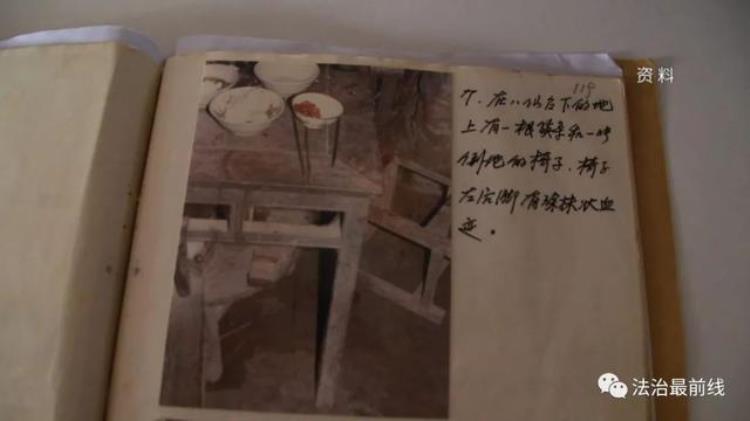 资料
119
7.在八仙台下的地
上有一根 和一
倒地的椅子.椅子
左后脚有涂抹状血
迹。
法治最前线